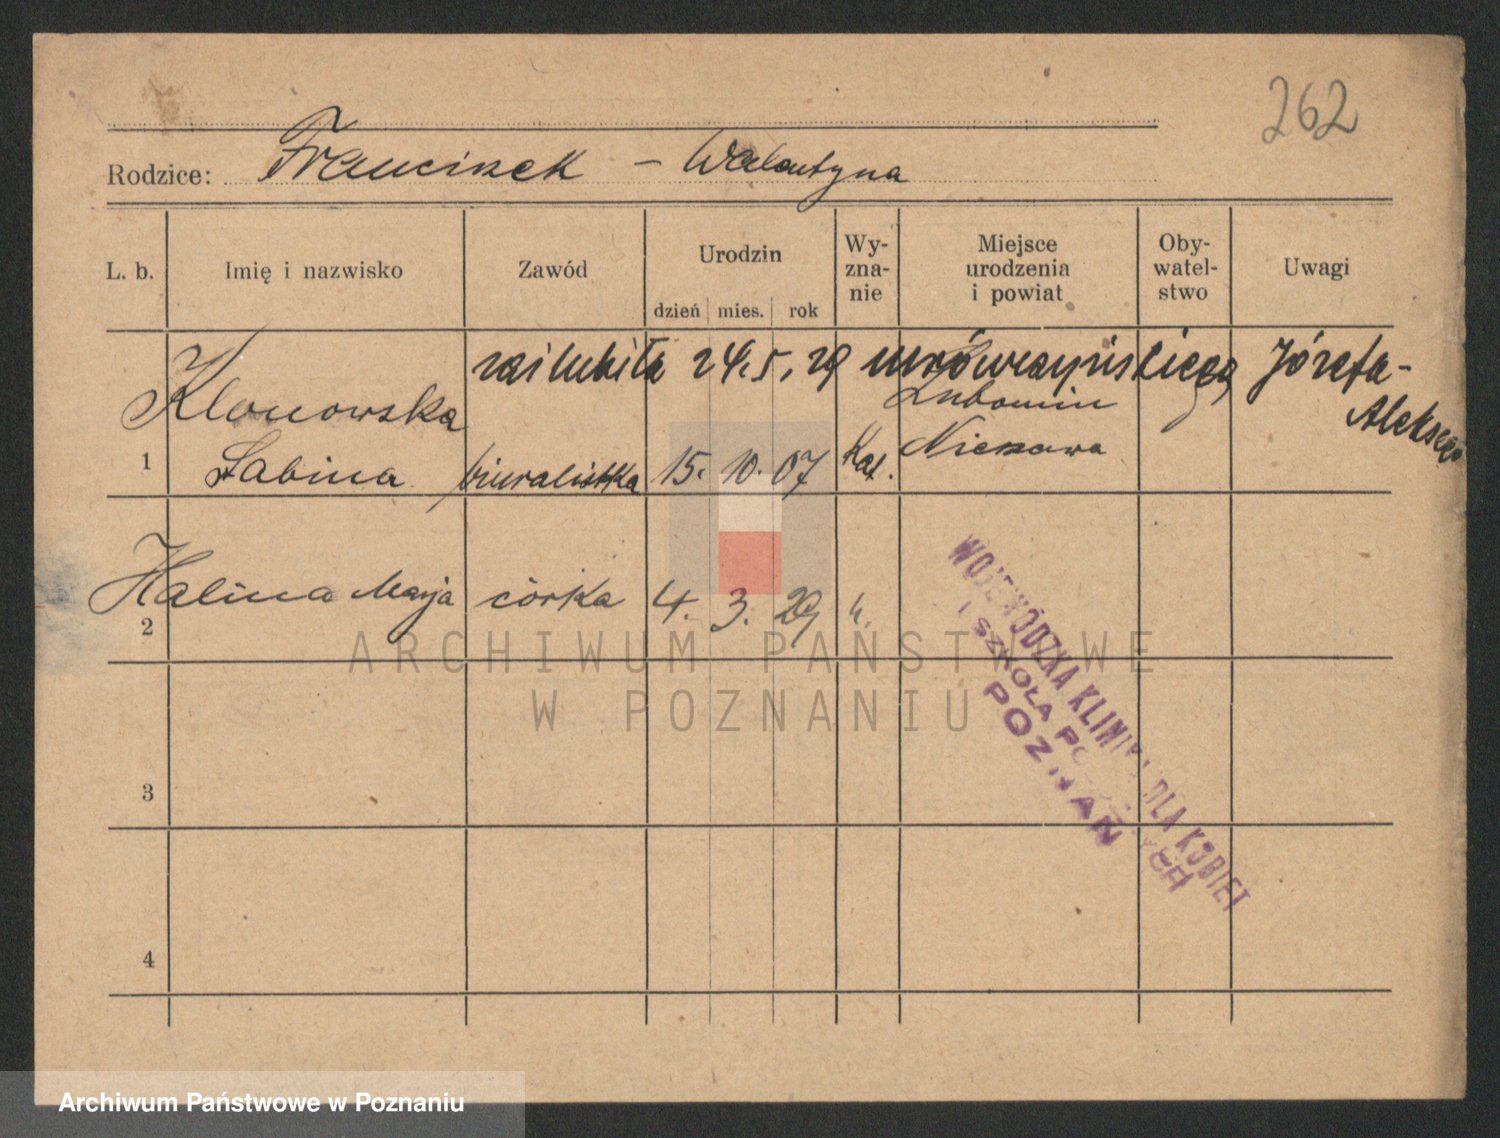 262
Rodzice: Franciszek – Walentyna
L. b. Imię i nazwisko Zawód Urodzin Wy-zna-nie Miejsce urodzenia i powiat Oby-watel-stwo Uwagi
dzień mies. rok
zaślubiła 24.5.29 Mrówczyńskiego, Józefa-
Aleksego
Klonowska Lubomin
1 Sabina biuralistka 15. 10. 07 Kat. Nieszawa
Halina Marja córka 4. 3. 29 "
2
3
4
WOJEWÓDZKA KLINIKA DLA KOBIET
I SZKOŁA POŁOŻNYCH
POZNAŃ
ARCHIWUM PAŃSTWOWE
W POZNANIU
Archiwum Państwowe w Poznaniu